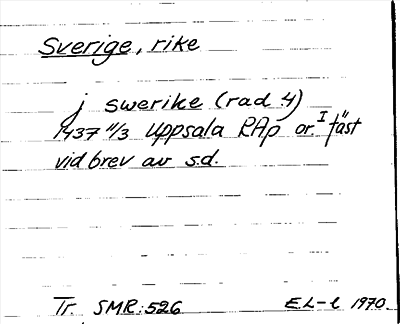 Sverige, rike
j swerike (rad 4)
1437 11/3 Uppsala RAp or. I fäst
vid brev av s.d.
Tr. SMR:526 EL-l 1970